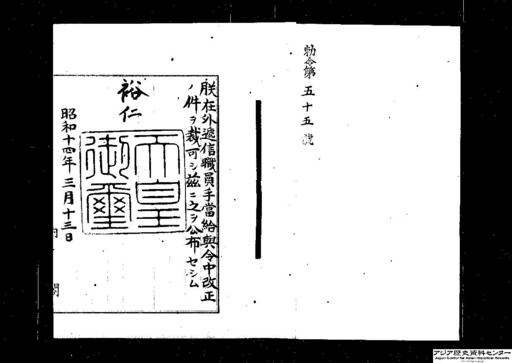 勅令第五十五號
朕在外遞信職員手當給與令中改正
ノ件ヲ裁可シ茲ニ之ヲ公布セシム
裕仁
天皇
御璽
昭和十四年三月十三日
内閣
アジア歴史資料センター
Japan Center for Asian Historical Records